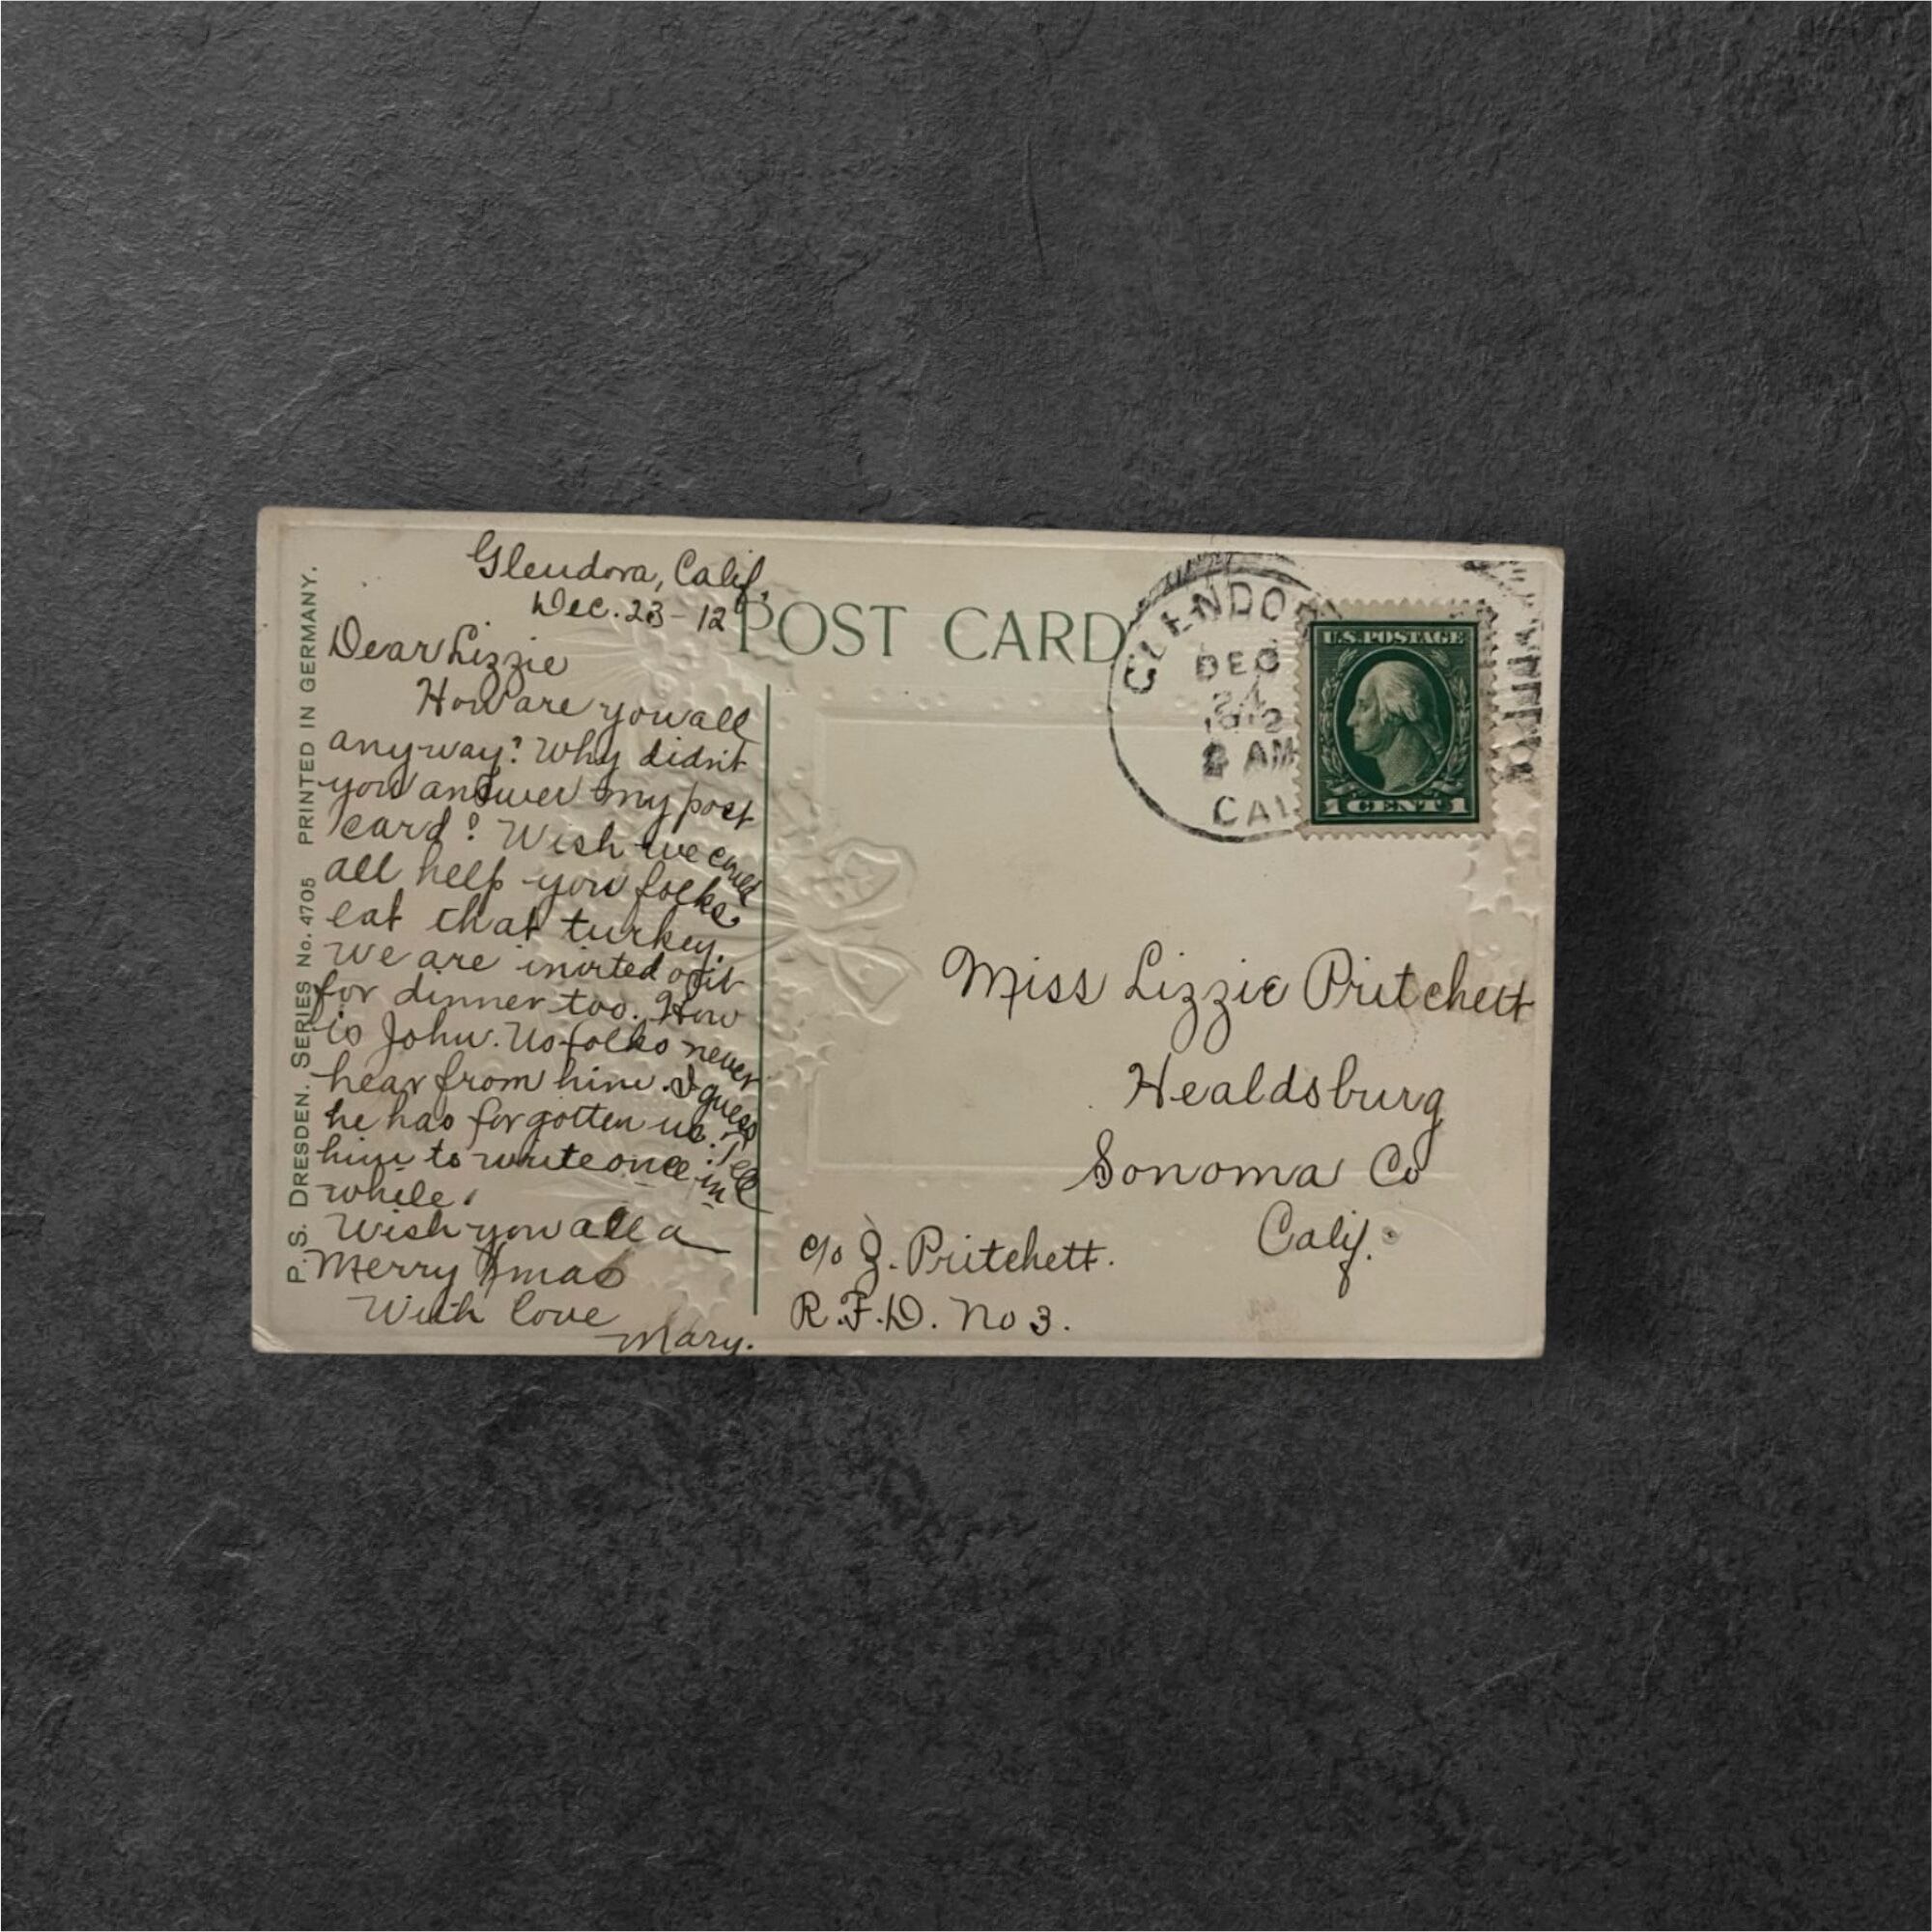 Glendora, Calif,
Dec. 23-12
Dear Lizzie
How are you all
anyway? Why didn't
you answer my post
card? Wish we could
all help you folks
eat that turkey.
We are invited out
for dinner too. How
is John. Us folks never
hear from him. I guess
he has forgotten us. Tell
him to write once in
while.
Wish you all a
Merry Xmas
With love
Mary.
P. S. DRESDEN. SERIES No. 4705 PRINTED IN GERMANY.
POST CARD
GLENDO
DEC
24
1912
AM
CAL
U.S. POSTAGE
1 CENT 1
Miss Lizzie Pritchett
Healdsburg
Sonoma Co
Calif.
c/o J. Pritchett.
R.F.D. No 3.